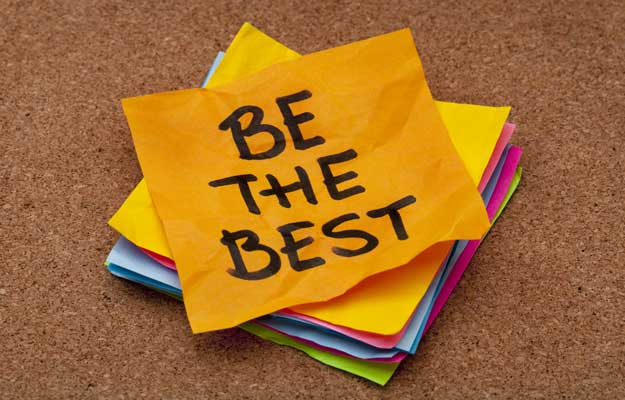 BE
THE
BEST